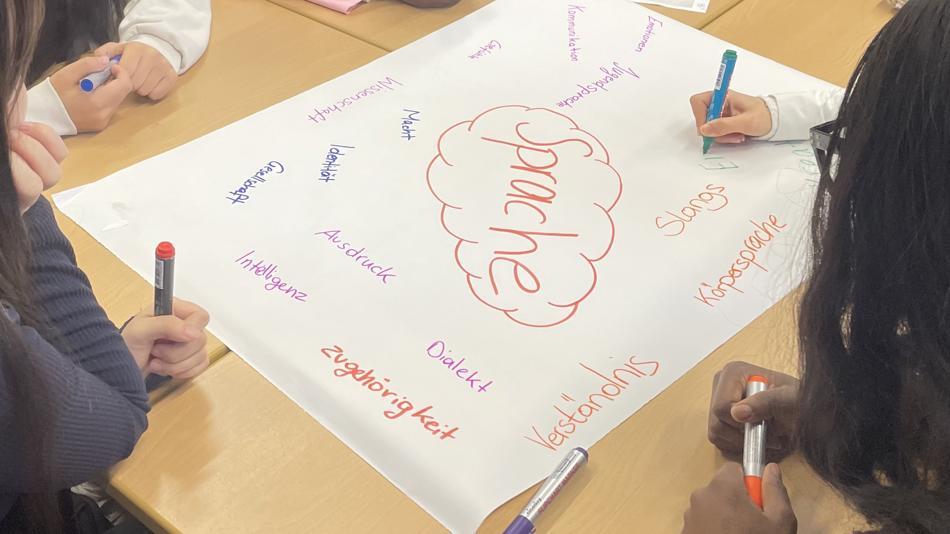 Emotionen
Kommunikation
Gefühl
Jugendsprache
Wissenschaft
Macht
Sprache
Identität
Gesellschaft
Slangs
Ausdruck
Körpersprache
Intelligenz
Dialekt
zugehörigkeit
Verständnis